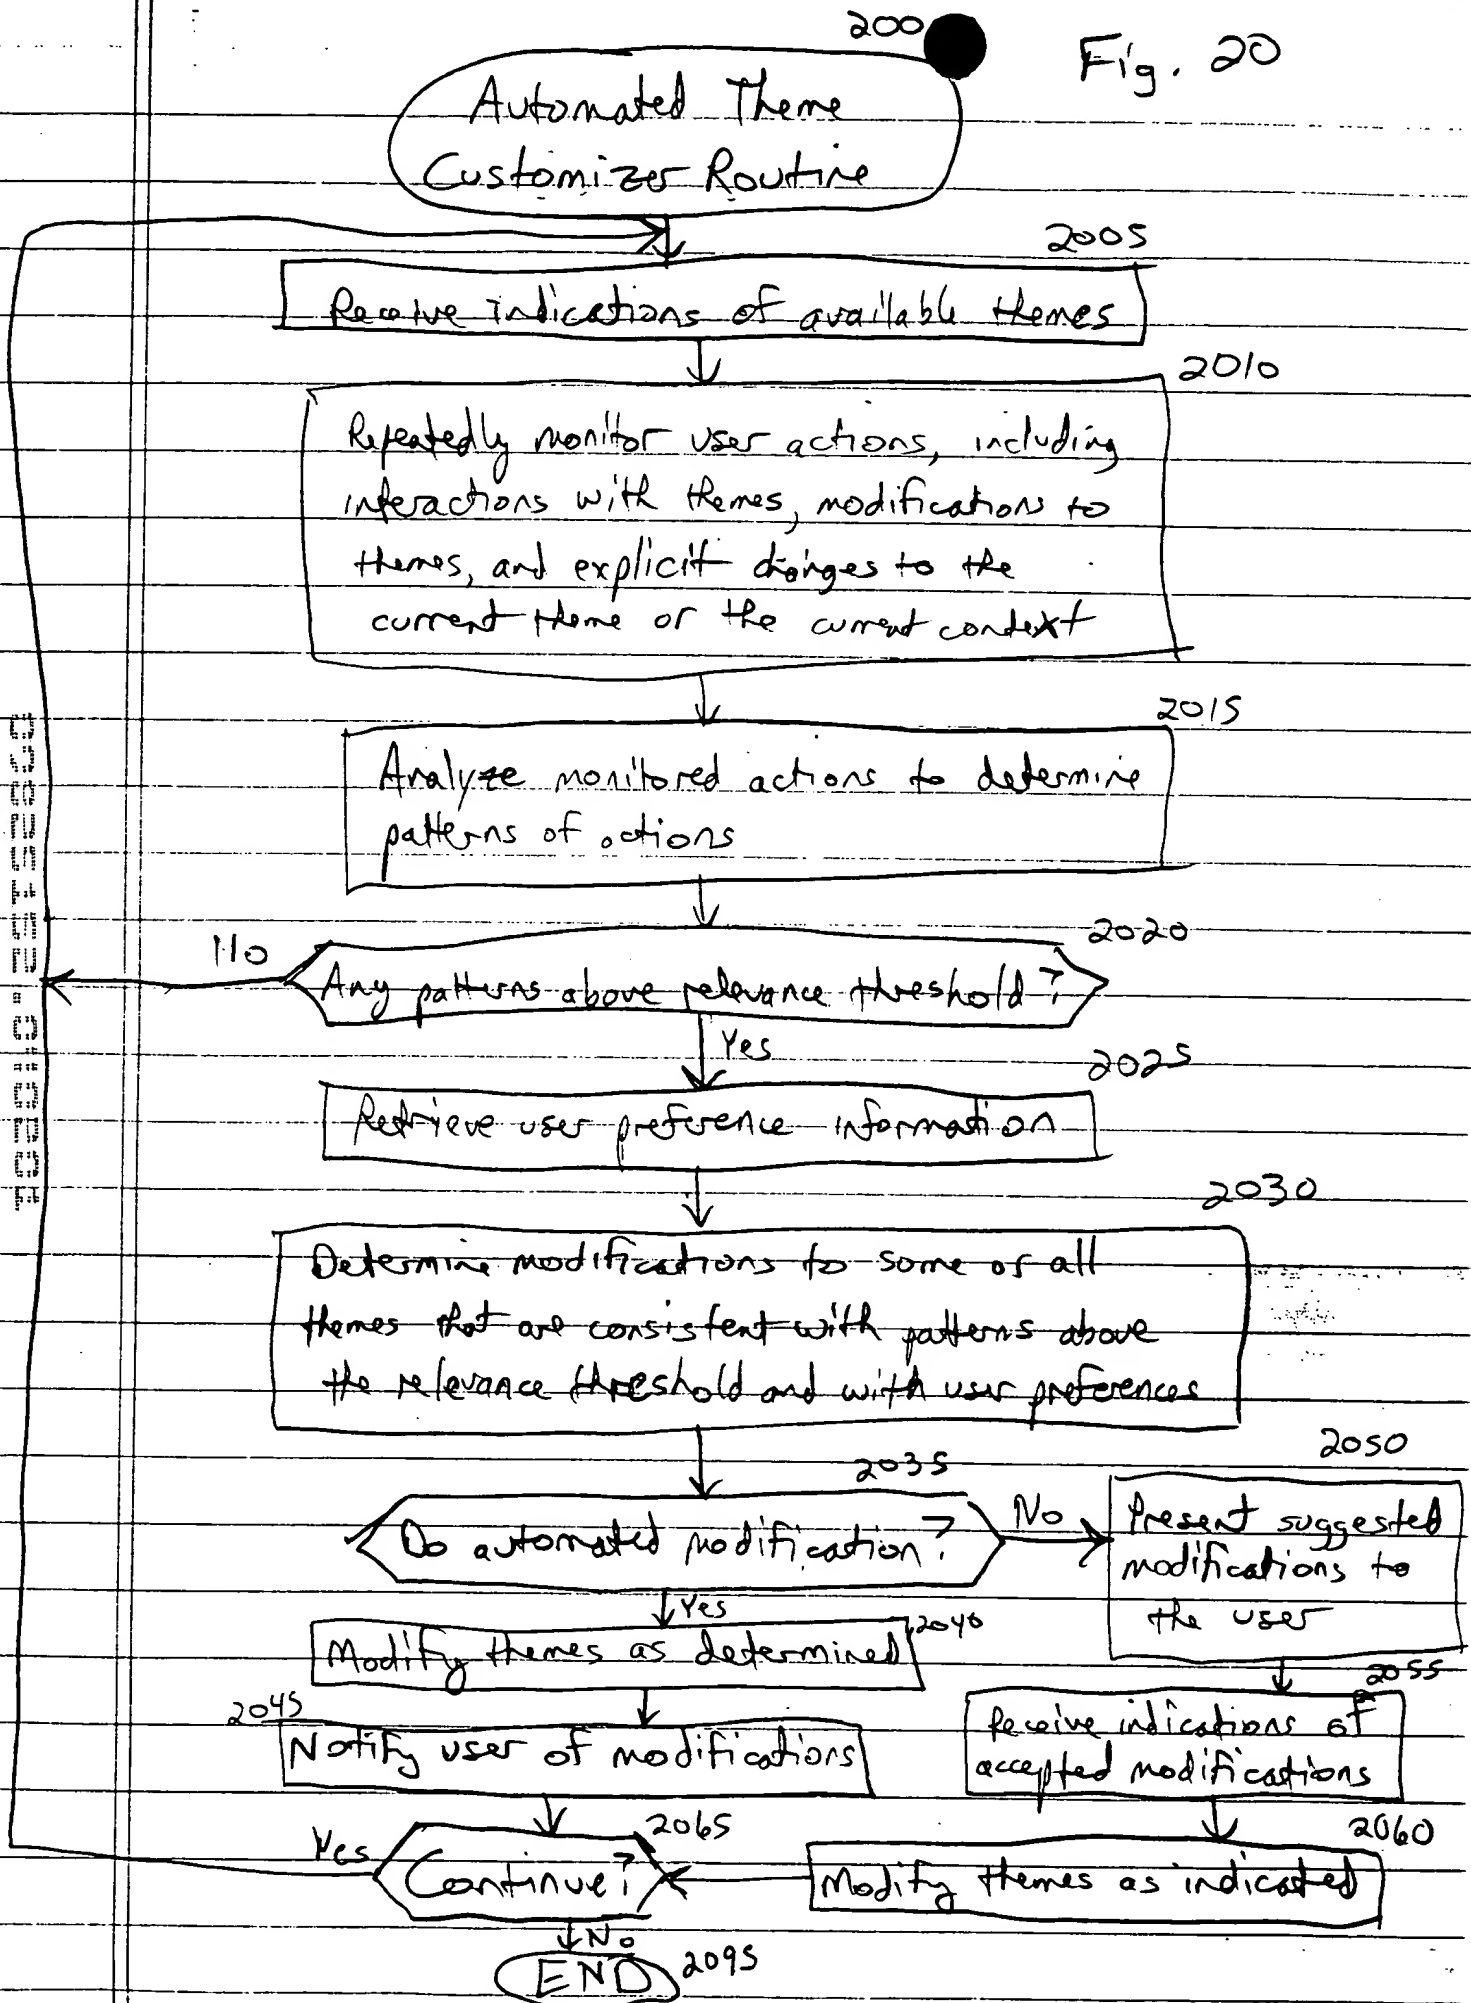 200
Fig. 20
Automated Theme
Customizer Routine
2005
Receive indications of available themes
2010
Repeatedly monitor user actions, including
interactions with themes, modifications to
themes, and explicit changes to the
current theme or the current context
2015
Analyze monitored actions to determine
patterns of actions
2020
No
Any patterns above relevance threshold?
Yes
2025
Retrieve user preference information
2030
Determine modifications to some or all
themes that are consistent with patterns above
the relevance threshold and with user preferences
2035
2050
Do automated modification?
No
Present suggested
modifications to
the user
Yes
2040
Modify themes as determined
2055
2045
Notify user of modifications
Receive indications of
accepted modifications
2065
2060
Yes
Continue?
Modify themes as indicated
No
END
2095